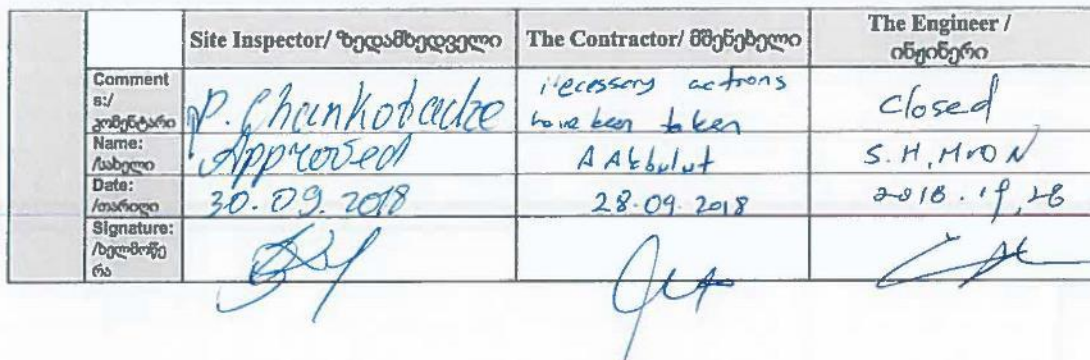 Site Inspector/ ზედამხედველი
The Contractor/ მშენებელი
The Engineer /
ინჟინერი
Comment
s:/
კომენტარი
P. Chankotadze
necessary actions
have been taken
Closed
Name:
/სახელი
Approved
A Akbulut
S.H,
Date:
/თარიღი
30.09.2018
28.09.2018
Signature:
/ხელმოწე
რა